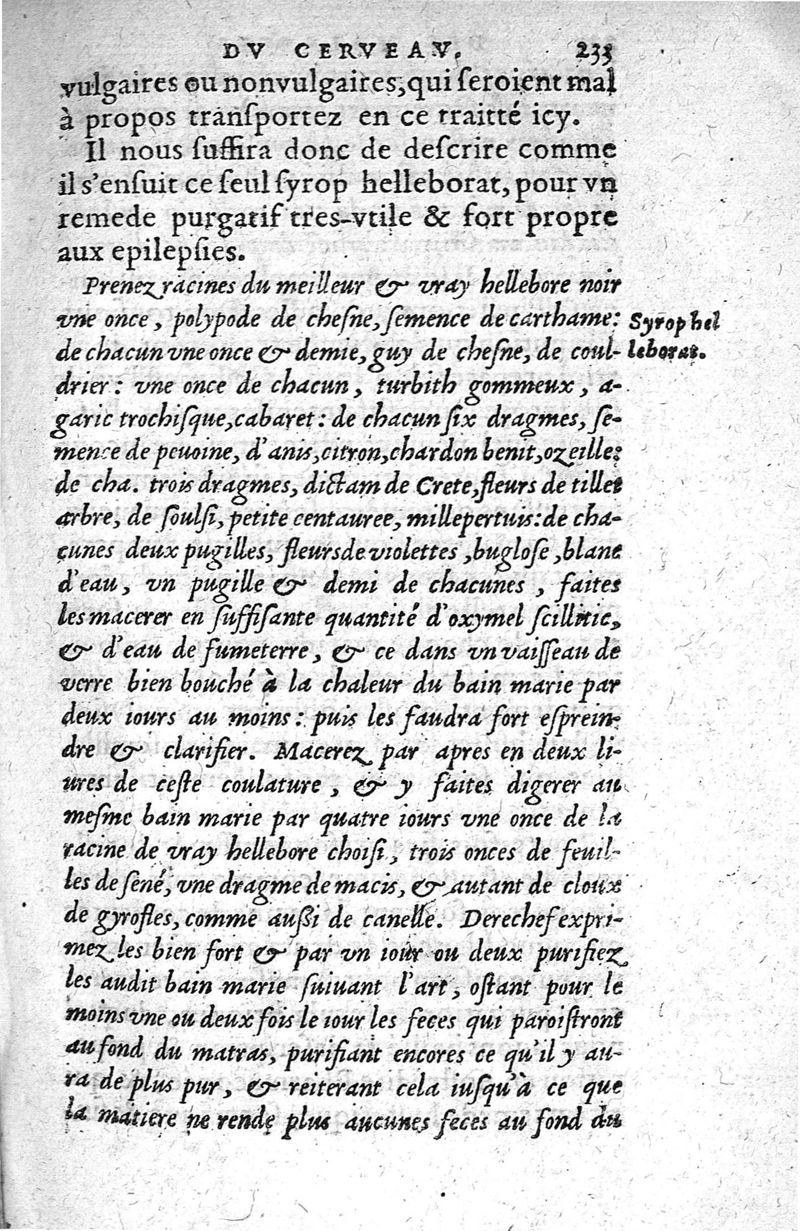 DV CERVEAV. 235
vulgaires ou nonvulgaires, qui ſeroient mal
à propos tranſportez en ce traitté icy.
Il nous ſuffira donc de deſcrire comme
il s'enſuit ce ſeul ſyrop helleborat, pour vn
remede purgatif tres-vtile & fort propre
aux epilepſies.
Prenez racines du meilleur & vray hellebore noir
vne once, polypode de cheſne, ſemence de carthame:
de chacun vne once & demie, guy de cheſne, de coul-
drier: vne once de chacun, turbith gommeux, a-
garic trochiſque, cabaret: de chacun ſix dragmes, ſe-
mence de pevoine, d'anis, citron, chardon benit, ozeille:
de cha. trois dragmes, dictam de Crete, fleurs de tillet
arbre, de ſoulſi, petite centauree, millepertuis: de cha-
cunes deux pugilles, fleurs de violettes, bugloſe, blanc
d'eau, vn pugille & demi de chacunes, faites
les macerer en ſuffiſante quantité d'oxymel ſcillitic,
& d'eau de fumeterre, & ce dans vn vaiſſeau de
verre bien bouché à la chaleur du bain marie par
deux iours au moins: puis les faudra fort eſprein-
dre & clarifier. Macerez par apres en deux li-
ures de ceſte coulature, & y faites digerer au
meſme bain marie par quatre iours vne once de la
racine de vray hellebore choiſi, trois onces de feuil-
les de ſené, vne dragme de macis, & autant de cloux
de gyrofles, comme auſſi de canelle. Derechef expri-
mez les bien fort & par vn iour ou deux purifiez
les audit bain marie ſuiuant l'art, oſtant pour le
moins vne ou deux fois le iour les feces qui paroiſtront
au fond du matras, purifiant encores ce qu'il y au-
ra de plus pur, & reiterant cela iuſqu'à ce que
la matiere ne rende plus aucunes feces au fond du
Syrop hel
leborat.